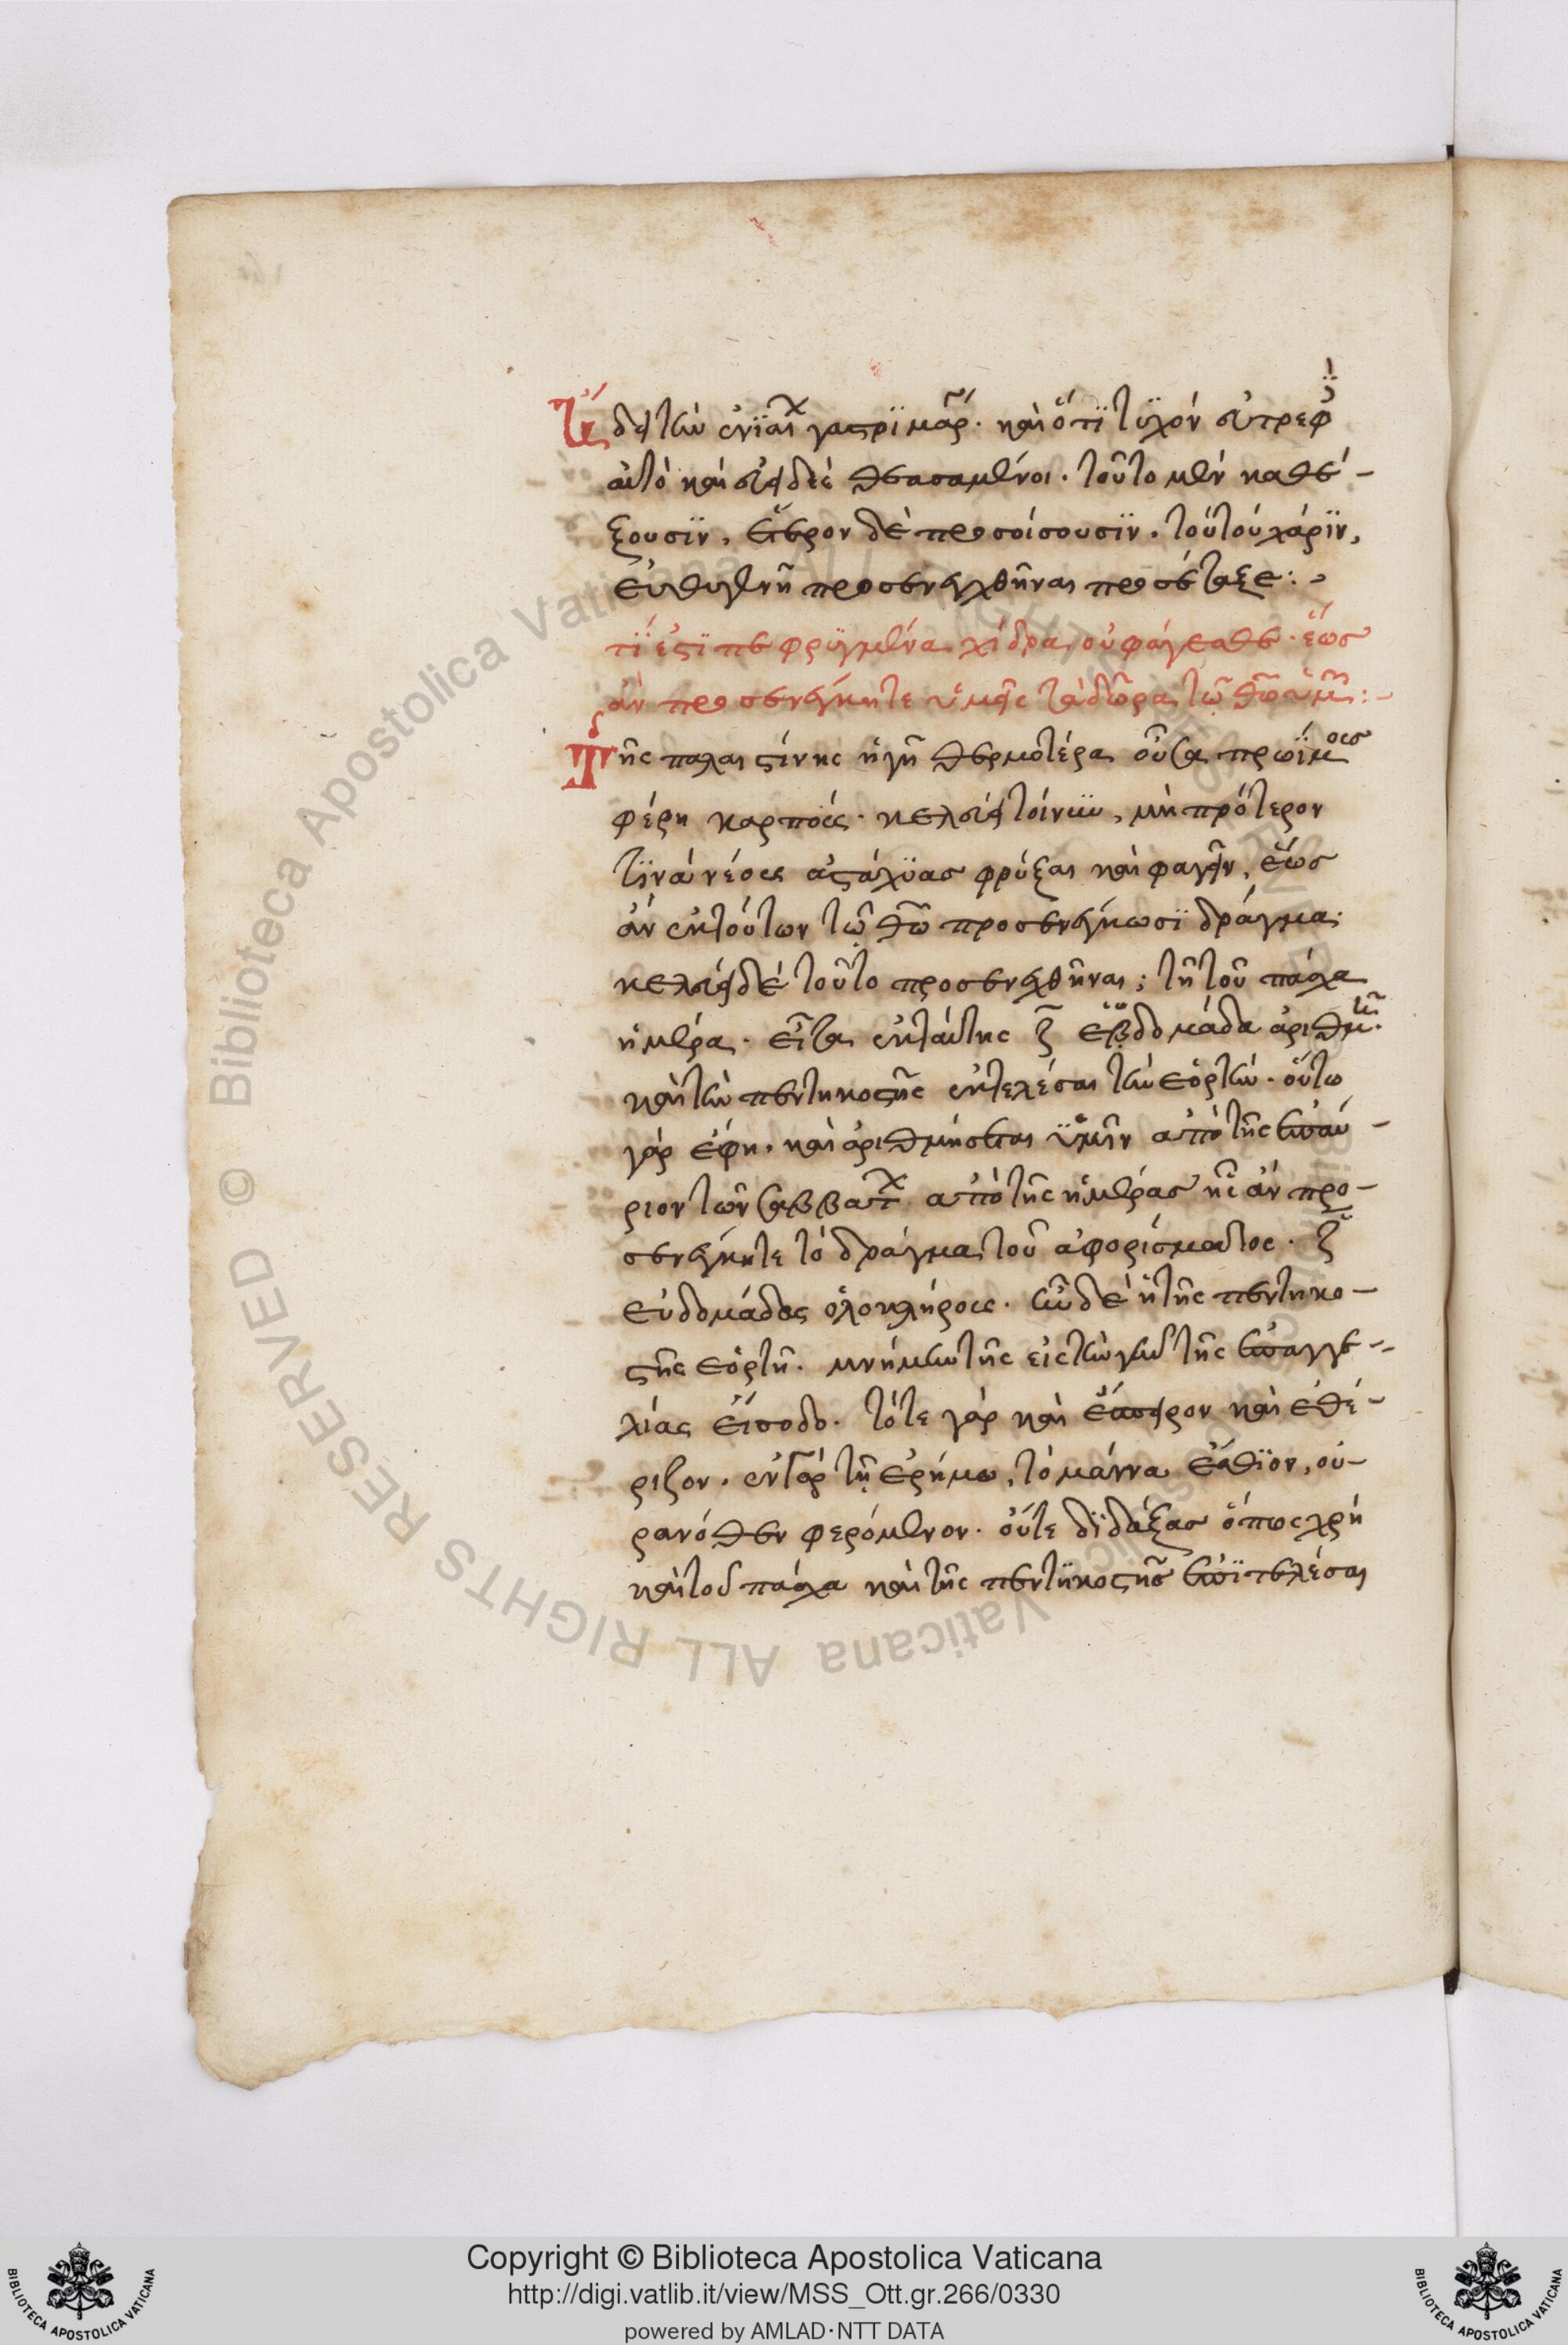 δει τὴν ἐνιαυ γαστριμαρ. καὶ ὅτι τυχὸν εὐτρεφ
αὐτὸ καὶ εἰδὲς θεασαμένοι. τοῦτο μὲν καθέ-
ξουσϊν, ἕτερον δὲ προσοίσουσϊν. τούτου χάρϊν,
εὐθυγενῆ προσενεχθῆναι προσέταξε:
τί ἐστι πεφρυγμένα χίδρα οὐ φάγεσθε. ἕως
ἂν προσενέγκητε ὑμεῖς τὰ δῶρα τῶ θῶ ὑμῶν:
Τῆς παλαιστίνης ἡ γῆ θερμοτέρα οὖσα πρωΐμους
φέρη καρποὺς. κελεύει τοίνυν, μὴ πρότερον
τϊνὰ νέους ἀστάχϋας φρύξαι καὶ φαγεῖν, ἕως
ἂν ἐκ τούτων τῶ θῶ προσενέγκωσϊ δράγμα.
κελεύει δὲ τοῦτο προσενεχθῆναι; τῆ τοῦ πάσχα
ἡμέρα. εἶτα ἐκ ταύτης ζ ἑβδομάδα ἀριθμ
καὶ τὴν πεντηκοστῆς ἐκτελέσαι τὴν ἑορτήν. οὕτω
γὰρ ἔφη. καὶ ἀριθμήσεται ὑμῖν ἀπὸ τῆς ἐπαύ-
ριον τῶν σαββατ. ἀπὸ τῆς ἡμέρας ἧς ἂν προ-
σενέγκητε τὸ δράγμα τοῦ ἀφορίσματος. ζ
εὐδομάδας ὁλοκλήρους. ἦν δὲ ἡ τῆς πεντηκο-
στῆς ἑορτή. μνήμην τῆς εἰς τὴν γῆν τῆς ἐπαγγε-
λίας εἴσοδο. τότε γὰρ καὶ ἔσπειρον καὶ ἐθέ-
ριζον. ἐν γὰρ τῆ ἐρήμω, τὸ μάννα ἔσθϊον, οὐ-
ρανόθεν φερόμενον. οὔτε δϊδάξας ὅπως χρὴ
καὶ τοῦ πάσχα καὶ τῆς πεντηκοστῆς ἐπϊτελέσαι
Copyright © Biblioteca Apostolica Vaticana
http://digi.vatlib.it/view/MSS_Ott.gr.266/0330
powered by AMLAD·NTT DATA
BIBLIOTECA APOSTOLICA VATICANA
BIBLIOTECA APOSTOLICA VATICANA
© Biblioteca Apostolica Vaticana ALL RIGHTS RESERVED